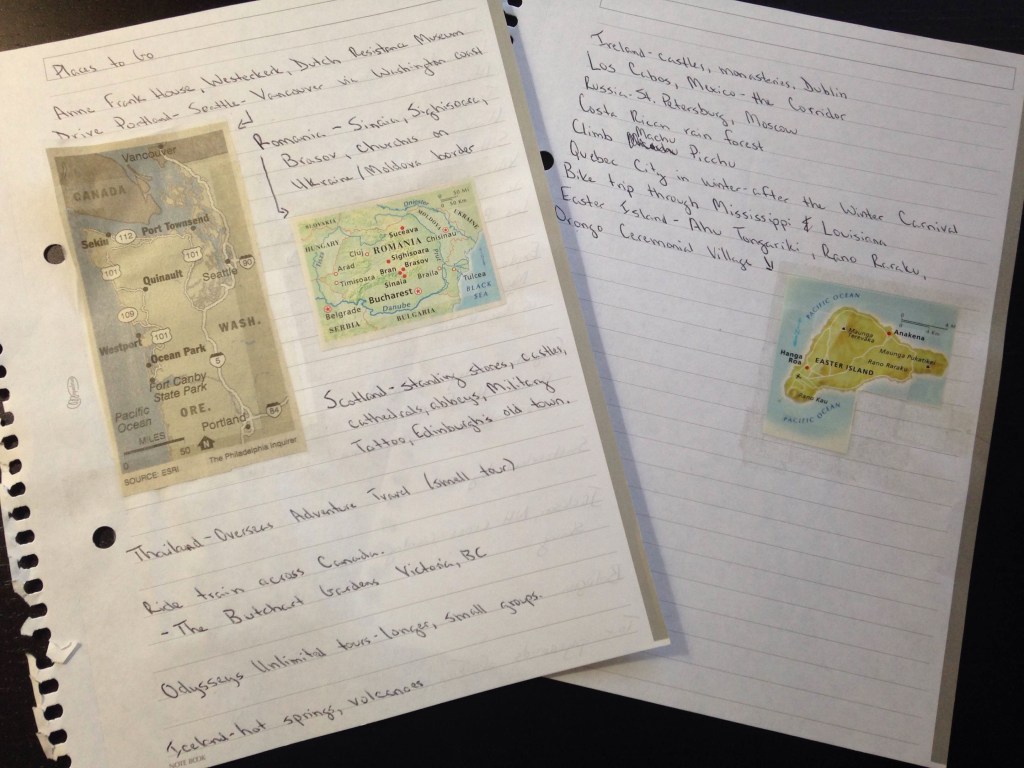 Places to Go
Anne Frank House, Westerkerk, Dutch Resistance Museum
Drive Portland - Seattle - Vancouver via Washington coast
Romania - Sinaia, Sighisoara,
Brasov, churches on
Ukraine/Moldova border
Vancouver
CANADA
Sekiu
112
Port Townsend
101
101
Quinault
Seattle
90
109
WASH.
Westport
101
Ocean Park
5
Fort Canby
State Park
ORE.
Pacific
Ocean
Portland
84
MILES
0
50
N
SOURCE: ESRI
The Philadelphia Inquirer
SLOVAKIA
UKRAINE
HUNGARY
MOLDOVA
Suceava
Chisinau
ROMANIA
Cluj
Sighisoara
Arad
Bran
Brasov
Timisoara
Sinaia
Braila
Tulcea
Bucharest
BLACK
SEA
Belgrade
Danube
SERBIA
BULGARIA
Scotland - standing stones, castles,
cathedrals, abbeys, Military
Tattoo, Edinburgh's old town.
Thailand - Overseas Adventure Travel (small tour)
Ride train across Canada.
- The Butchart Gardens Victoria, BC
Odysseys Unlimited tours - longer, small groups.
Iceland - hot springs, volcanoes
NOTE BOOK
Ireland - castles, monasteries, Dublin
Los Cabos, Mexico - the Corridor
Russia - St. Petersburg, Moscow
Costa Rican rain forest
Climb Machu Picchu
Quebec City in winter - after the Winter Carnival
Bike trip through Mississippi & Louisiana
Easter Island - Ahu Tongariki, Rano Raraku,
Orongo Ceremonial Village
PACIFIC OCEAN
Anakena
Maunga
Terevaka
Maunga Pukatikei
Hanga
Roa
Rano Raraku
EASTER ISLAND
Rano Kau
PACIFIC OCEAN